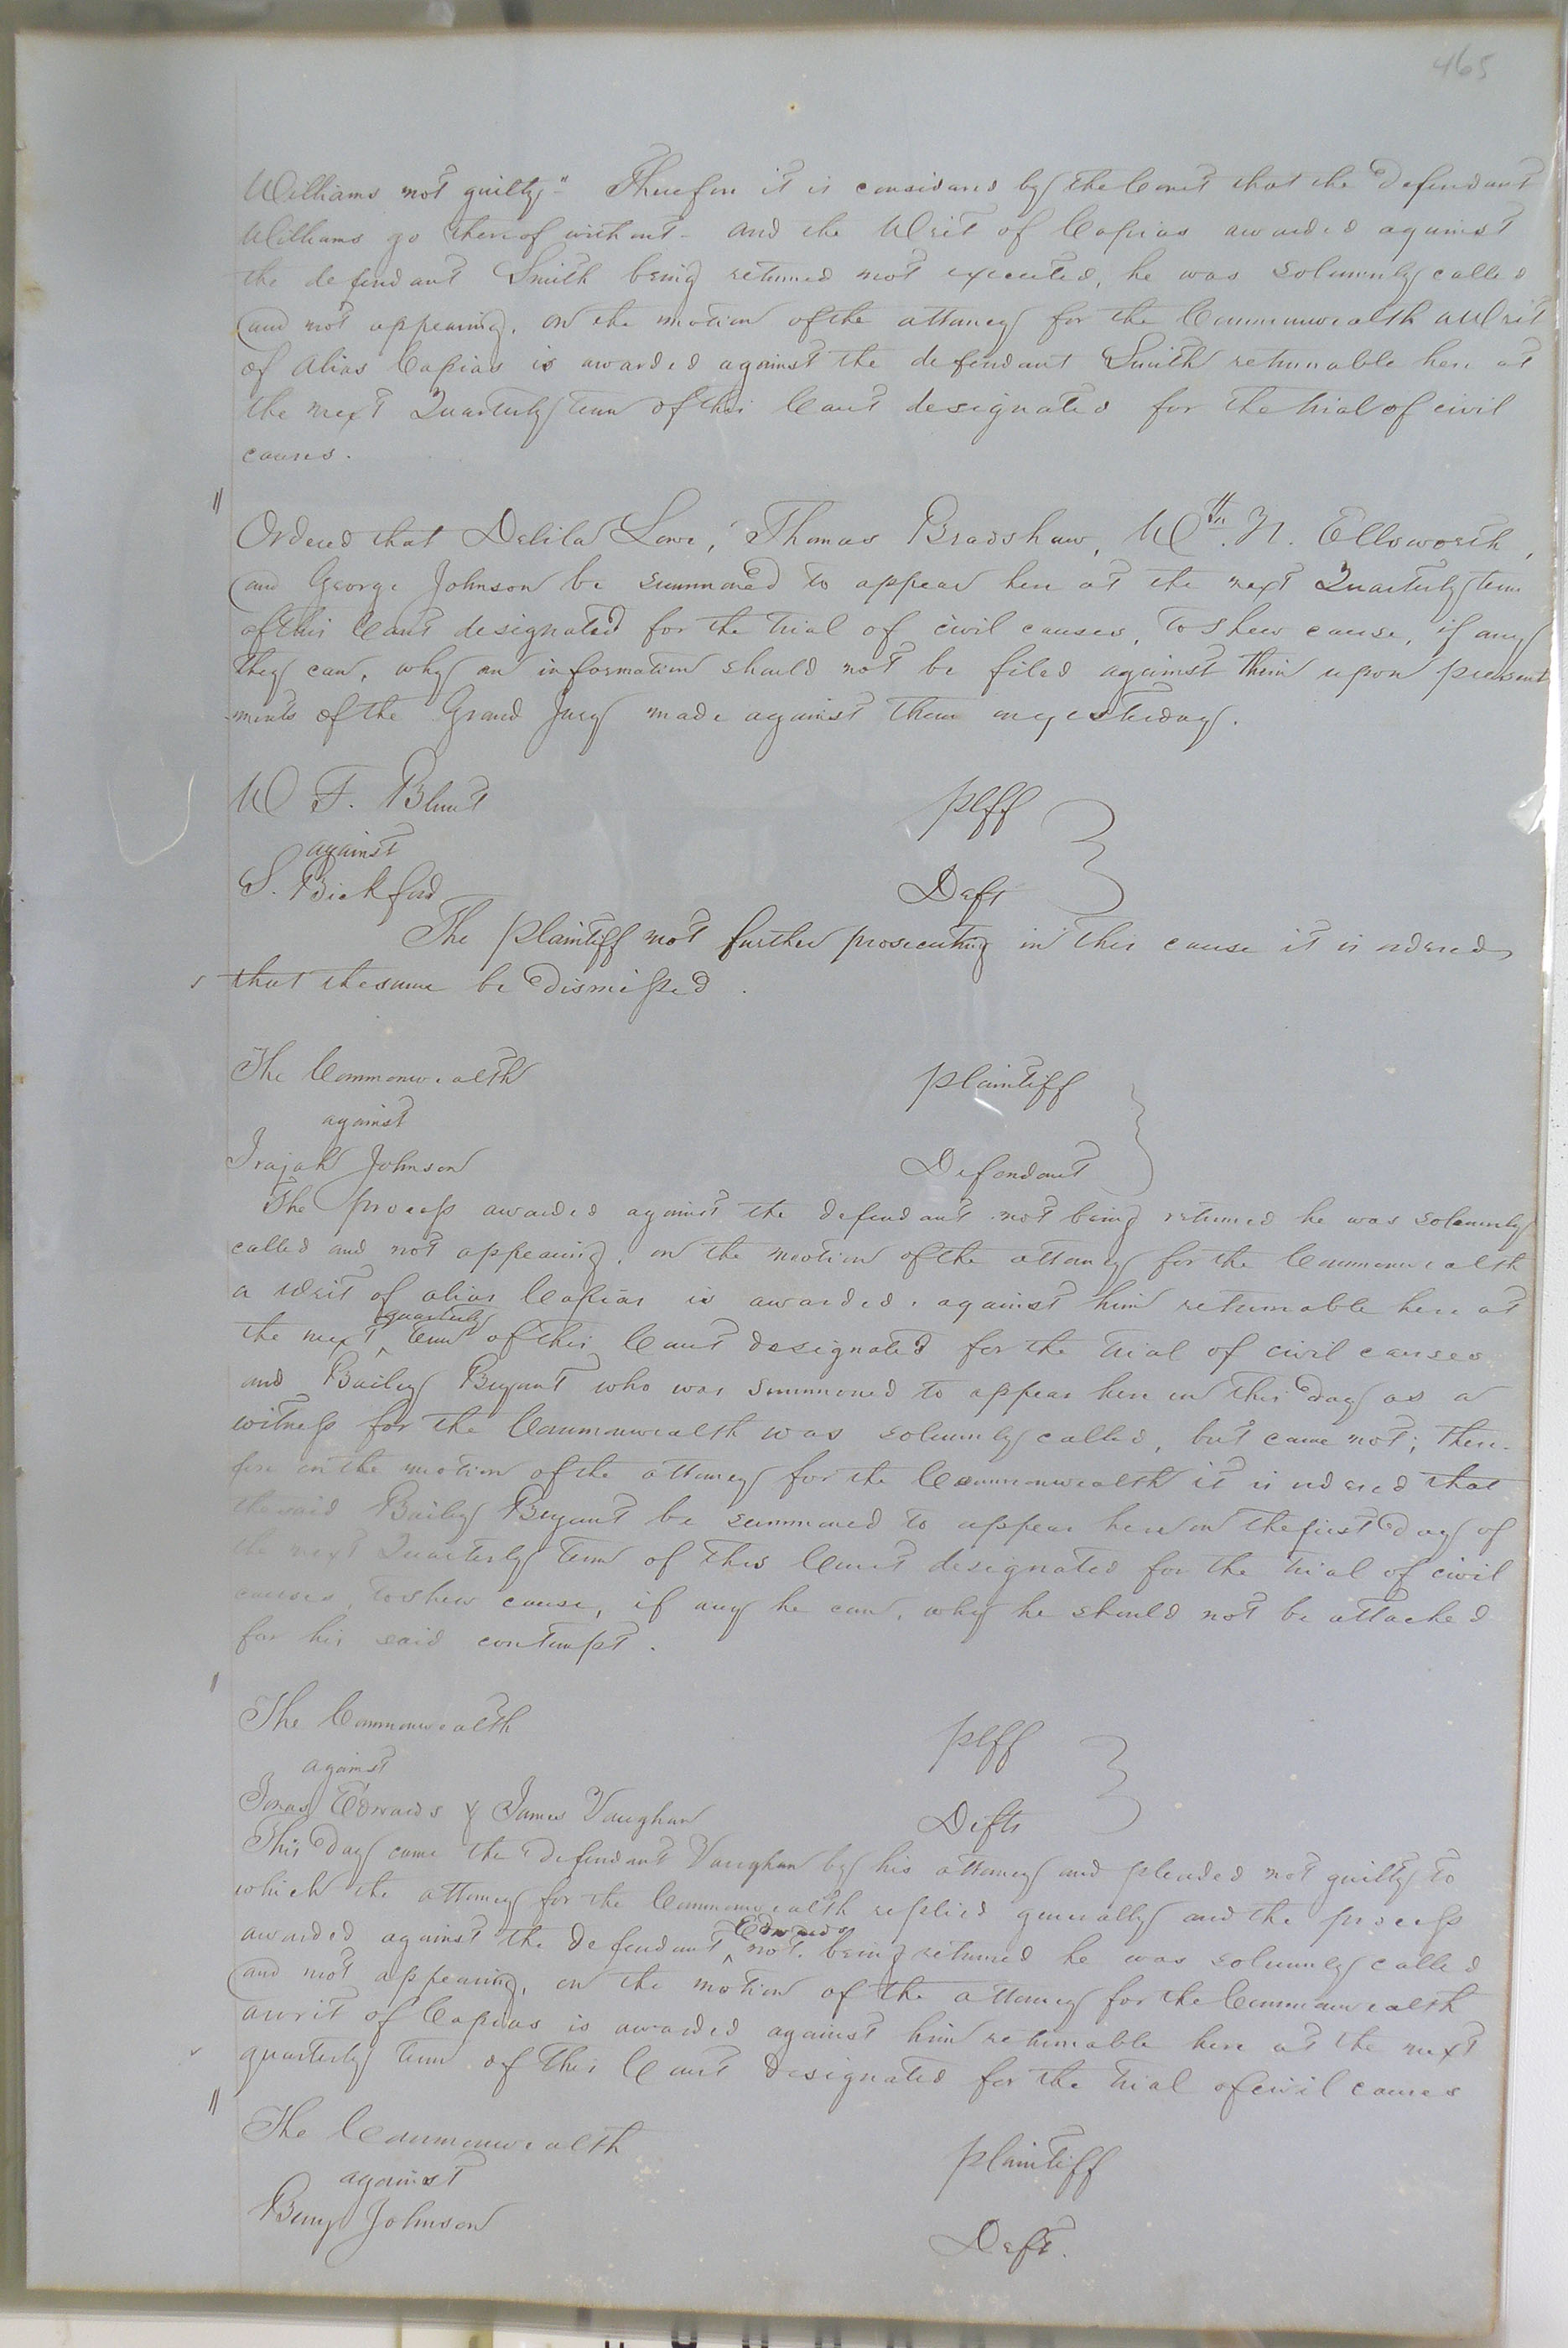 465
Williams not guilty." Therefore it is considered by the Court that the defendant
Williams go thereof without - and the Writ of Capias awarded against
the defendant Smith being returned not executed, he was solemnly called
and not appearing, on the motion of the attorney for the Commonwealth a Writ
of alias Capias is awarded against the defendant Smith returnable here at
the next Quarterly term of this Court designated for the trial of civil
causes.
Ordered that Delila Lowe, Thomas Bradshaw, Wm. N. Ellsworth,
and George Johnson be summoned to appear here at the next Quarterly term
of this Court designated for the trial of civil causes, to shew cause, if any
they can, why an information should not be filed against them upon present
ments of the Grand Jury made against them on yesterday.
W F. Blunt plff
against
S. Bickford Deft
The plaintiff not further prosecuting in this cause it is ordered
that the same be dismissed.
The Commonwealth plaintiff
against
Irajah Johnson Defendant
The process awarded against the defendant not being returned he was solemnly
called and not appearing, on the motion of the attorney for the Commonwealth
a writ of alias Capias is awarded, against him returnable here at
the next quarterly term of this Court designated for the trial of civil causes
and Bailey Bryant who was summoned to appear here on this day as a
witness for the Commonwealth was solemnly called, but came not; there-
fore on the motion of the attorney for the Commonwealth it is ordered that
the said Bailey Bryant be summoned to appear here on the first day of
the next Quarterly term of this Court designated for the trial of civil
causes, to shew cause, if any he can, why he should not be attached
for his said contempt.
The Commonwealth plff
against
Jonas Edwards & James Vaughan Defts
This day came the defendant Vaughan by his attorney and pleaded not guilty to
which the attorney for the Commonwealth replied generally and the process
awarded against the defendant Edwards not being returned he was solemnly called
and not appearing, on the motion of the attorney for the Commonwealth
a writ of Capias is awarded against him returnable here at the next
quarterly term of this Court designated for the trial of civil causes
The Commonwealth plaintiff
against
Benj Johnson Deft.